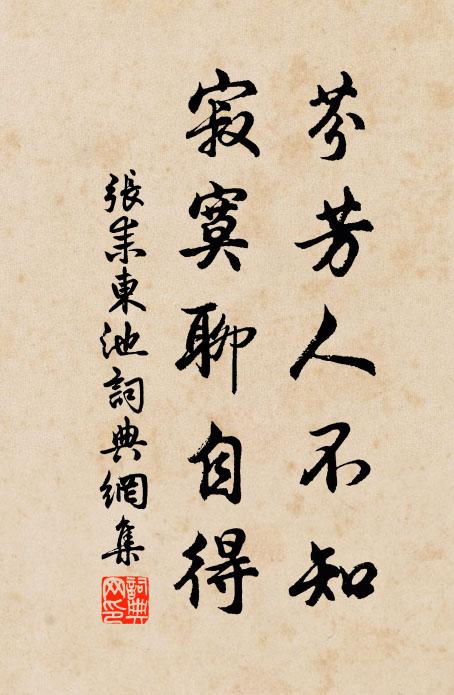 芬芳人不知
寂寞聊自得
張耒東池詞典網集
詞典
网印